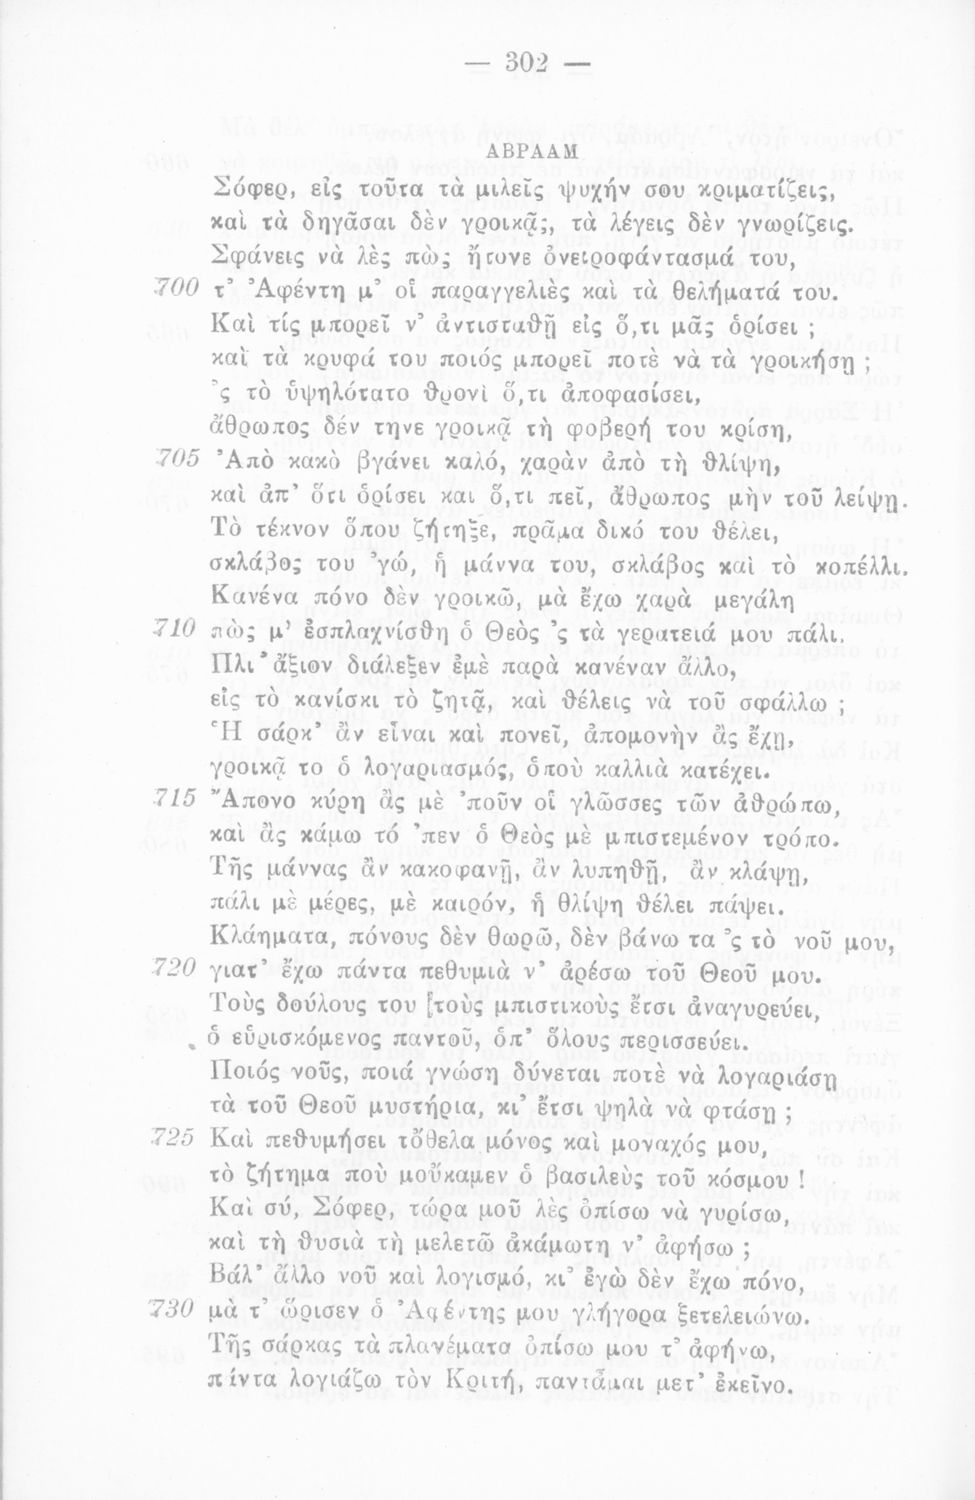 — 302 —
ΑΒΡΑΑΜ
Σόφερ, εἰς τοῦτα τὰ μιλεῖς ψυχήν σου κριματίζεις,
καὶ τὰ δηγᾶσαι δὲν γροικᾷς, τὰ λέγεις δὲν γνωρίζεις.
Σφάνεις νὰ λὲς πὼς ἤτονε ὀνειροφάντασμά του,
700 τ’ Ἀφέντη μ’ οἱ παραγγελιὲς καὶ τὰ θελήματά του.
Καὶ τίς μπορεῖ ν’ ἀντισταθῇ εἰς ὅ,τι μᾶς ὁρίσει ;
καὶ τὰ κρυφά του ποιός μπορεῖ ποτὲ νὰ τὰ γροικήσῃ ;
’ς τὸ ὑψηλότατο θρονὶ ὅ,τι ἀποφασίσει,
ἄθρωπος δέν τηνε γροικᾷ τὴ φοβερή του κρίση,
705 Ἀπὸ κακὸ βγάνει καλό, χαρὰν ἀπὸ τὴ θλίψη,
καὶ ἀπ’ ὅτι ὁρίσει και ὅ,τι πεῖ, ἄθρωπος μὴν τοῦ λείψῃ.
Τὸ τέκνον ὅπου ζήτηξε, πρᾶμα δικό του θέλει,
σκλάβος του ’γώ, ἡ μάννα του, σκλάβος καὶ τὸ κοπέλλι.
Κανένα πόνο δὲν γροικῶ, μὰ ἔχω χαρὰ μεγάλη
710 πὼς μ’ ἐσπλαχνίσθη ὁ Θεὸς ’ς τὰ γερατειά μου πάλι.
Πλι’ ἄξιον διάλεξεν ἐμὲ παρὰ κανέναν ἄλλο,
εἰς τὸ κανίσκι τὸ ζητᾷ, καὶ θέλεις νὰ τοῦ σφάλλω ;
Ἡ σάρκ’ ἂν εἶναι καὶ πονεῖ, ἀπομονὴν ἂς ἔχῃ,
γροικᾷ το ὁ λογαριασμός, ὁποὺ καλλιὰ κατέχει.
715 Ἄπονο κύρη ἂς μὲ ’ποῦν οἱ γλῶσσες τῶν ἀθρώπω,
καὶ ἂς κάμω τό ’πεν ὁ Θεὸς μὲ μπιστεμένον τρόπο.
Τῆς μάννας ἂν κακοφανῇ, ἂν λυπηθῇ, ἂν κλάψῃ,
πάλι μὲ μέρες, μὲ καιρόν, ἡ θλίψη θέλει πάψει.
Κλάηματα, πόνους δὲν θωρῶ, δὲν βάνω τα ’ς τὸ νοῦ μου,
720 γιατ’ ἔχω πάντα πεθυμιὰ ν’ ἀρέσω τοῦ Θεοῦ μου.
Τοὺς δούλους του [τοὺς μπιστικοὺς ἔτσι ἀναγυρεύει,
ὁ εὑρισκόμενος παντοῦ, ὁπ’ ὅλους περισσεύει.
Ποιός νοῦς, ποιά γνώση δύνεται ποτὲ νὰ λογαριάσῃ
τὰ τοῦ Θεοῦ μυστήρια, κι’ ἔτσι ψηλὰ νὰ φτάσῃ ;
725 Καὶ πεθυμήσει τὄθελα μόνος καὶ μοναχός μου,
τὸ ζήτημα ποὺ μοὔκαμεν ὁ βασιλεὺς τοῦ κόσμου !
Καὶ σύ, Σόφερ, τώρα μοῦ λὲς ὀπίσω νὰ γυρίσω,
καὶ τὴ θυσιὰ τὴ μελετῶ ἀκάμωτη ν’ ἀφήσω ;
Βάλ’ ἄλλο νοῦ καὶ λογισμό, κι’ ἐγὼ δὲν ἔχω πόνο,
730 μὰ τ’ ὥρισεν ὁ Ἀφέντης μου γλήγορα ξετελειώνω.
Τῆς σάρκας τὰ πλανέματα ὀπίσω μου τ’ ἀφήνω,
πάντα λογιάζω τὸν Κριτή, παντᾶμαι μετ’ ἐκεῖνο.